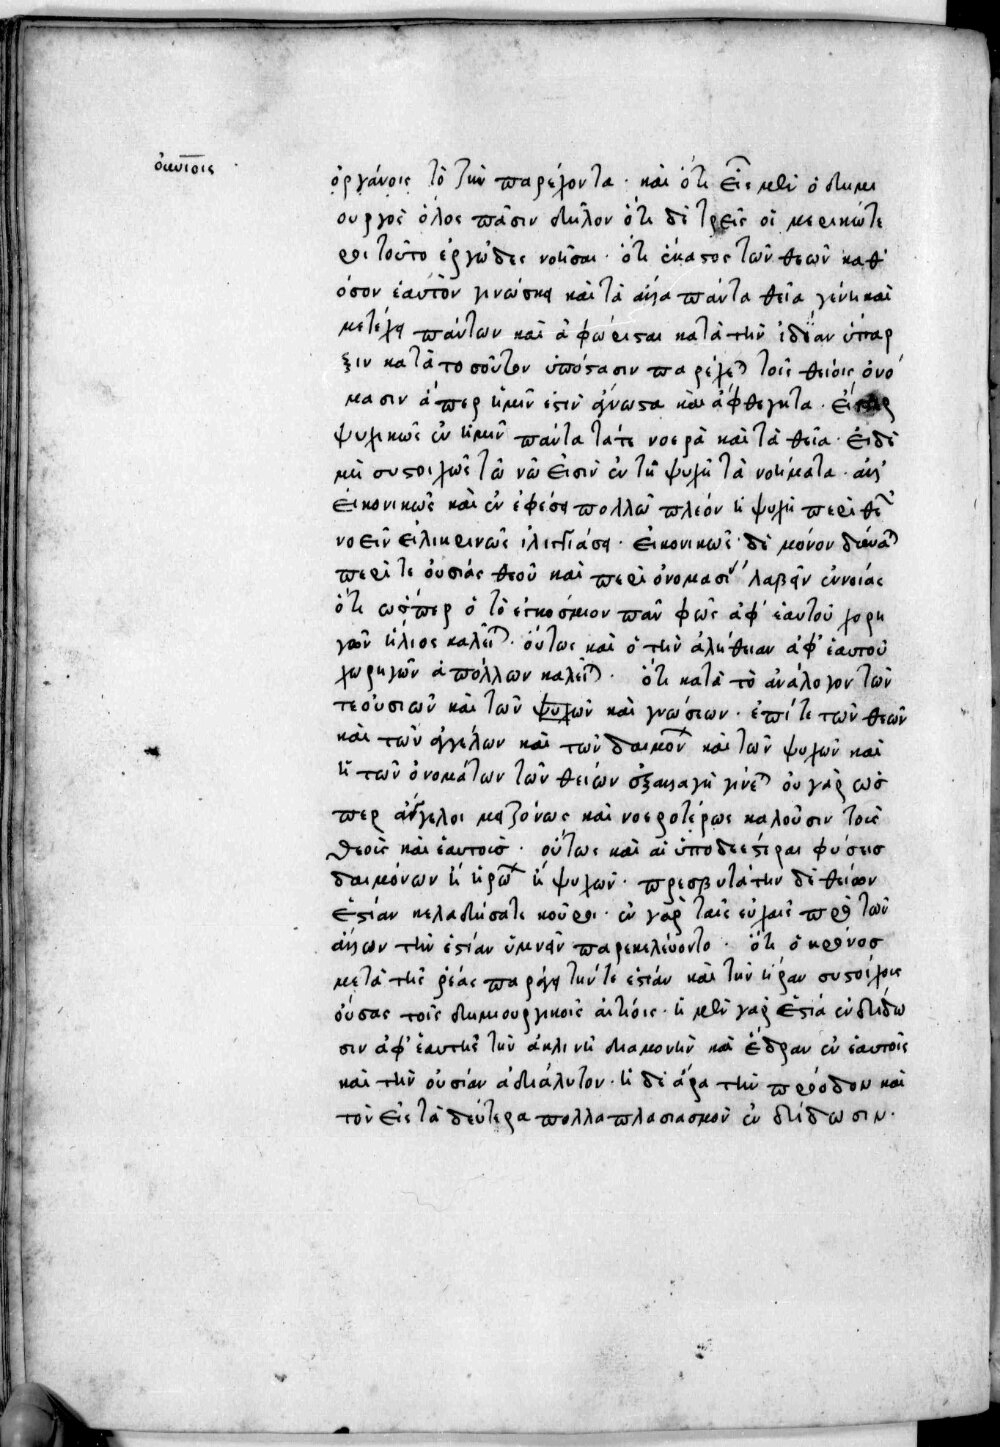 ὀκυτοις
ὀργάνοις τὸ ζῆν παρέχοντα· καὶ ὅτι εἷς μὲν ὁ δημι
ουργὸς ὅλος πᾶσιν δῆλον ὅτι δὲ τρεῖς οἱ μερικώτε
ροι τοῦτο ἐργῶδες νοῆσαι· ὅτι ἕκαστος τῶν θεῶν καθ'
ὅσον ἑαυτὸν γινώσκει καὶ τὰ ἄλλα πάντα θεῖα γένη καὶ
μετέχει πάντων καὶ ἀφώρισται κατὰ τὴν ἰδίαν ὕπαρ
ξιν κατὰ τοσοῦτον ὑπόστασιν παρέχεται τοῖς θείοις ὀνό
μασιν ἅπερ ἡμῖν ἐστὶν ἄγνωστα καὶ ἄφθεγκτα· εἴπερ
ψυχικῶς ἐν ἡμῖν πάντα τά τε νοερὰ καὶ τὰ θεῖα· εἰ δὲ
μὴ συστοιχῶς τῷ νῷ εἰσὶν ἐν τῇ ψυχῇ τὰ νοήματα· ἀλλ'
εἰκονικῶς καὶ ἐν ἐφέσει πολλῷ πλέον ἡ ψυχὴ περὶ θε
νοεῖν εἰλικρινῶς ἰλιγγιάσει· εἰκονικῶς δὲ μόνον δύναται
περί τε οὐσίας θεοῦ καὶ περὶ ὀνομασι λαβεῖν ἐννοίας
ὅτι ὥσπερ ὁ τὸ ἐγκόσμιον πᾶν φῶς ἀφ' ἑαυτοῦ χορη
γῶν ἥλιος καλεῖται· οὕτως καὶ ὁ τὴν ἀλήθειαν ἀφ' ἑαυτοῦ
χωρηγῶν ἀπόλλων καλεῖται· ὅτι κατὰ τὸ ἀνάλογον τῶν
τε οὐσιῶν καὶ τῶν ψυχῶν καὶ γνώσεων· ἐπί τε τῶν θεῶν
καὶ τῶν ἀγγέλων καὶ τῶν δαιμόνων καὶ τῶν ψυχῶν καὶ
ἡ τῶν ὀνομάτων τῶν θείων ἐξαλλαγὴ γίνεται οὐ γὰρ ὡς
περ ἄγγελοι μειζόνως καὶ νοεροτέρως καλοῦσιν τοὺς
θεοὺς καὶ ἑαυτούς· οὕτως καὶ αἱ ὑποδεέστεραι φύσεις
δαιμόνων ἢ ἡρώων ἢ ψυχῶν· πρεσβυτάτην δὲ θείων
ἑστίαν κελαδήσατε κοῦροι· ἐν γὰρ ταῖς εὐχαῖς πρὸ τῶν
ἄλλων τὴν ἑστίαν ὑμνεῖν παρεκελεύοντο· ὅτι ὁ κρόνος
μετὰ τῆς ῥέας παράγει τήν τε ἑστίαν καὶ τὴν ἥραν συστοίχους
οὔσας τοῖς δημιουργικοῖς αἰτίοις· ἡ μὲν γὰρ ἑστία ἐνδίδω
σιν ἀφ' ἑαυτῆς τὴν ἀκλινῆ διαμονὴν καὶ ἕδραν ἐν ἑαυτοῖς
καὶ τὴν οὐσίαν ἀδιάλυτον· ἡ δὲ ἥρα τὴν πρόοδον καὶ
τὸν εἰς τὰ δεύτερα πολλαπλασιασμὸν ἐνδίδωσιν·